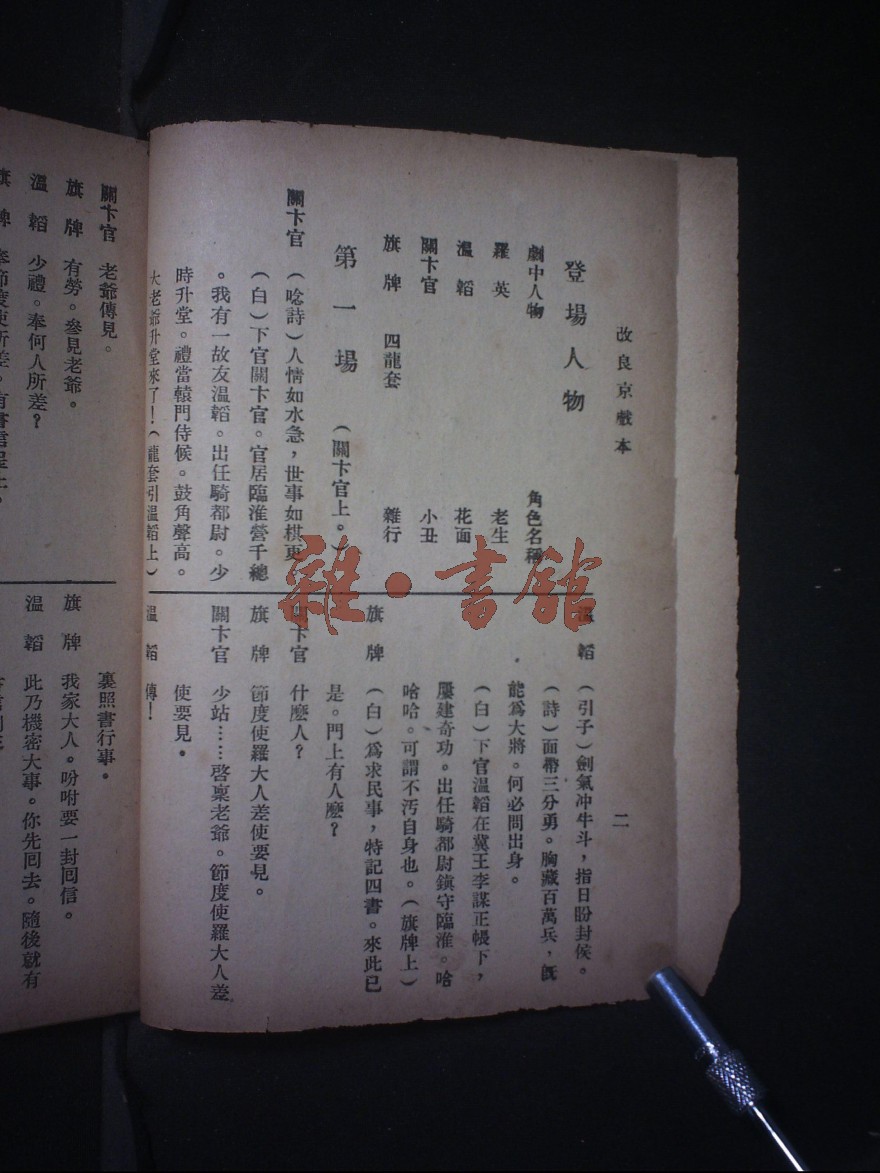 改良京戲本
二
登場人物
劇中人物 角色名稱
羅英 老生
溫韜 花面
關卞官 小丑
旗牌 四龍套 雜行
第一場 (關卞官上。)
關卞官 (唸詩)人情如水急,世事如棋更
(白)下官關卞官。官居臨淮營千總
。我有一故友溫韜。出任騎都尉。少
時升堂。禮當轅門侍候。鼓角聲高。
大老爺升堂來了!(龍套引溫韜上)
溫韜 (引子)劍氣冲牛斗,指日盼封侯。
(詩)面帶三分勇。胸藏百萬兵,旣
能爲大將。何必問出身。
(白)下官溫韜在冀王李謀正帳下,
屢建奇功。出任騎都尉鎭守臨淮。哈
哈哈。可謂不汚自身也。(旗牌上)
旗牌 (白)爲求民事,特記四書。來此已
是。門上有人麽?
關卞官 什麽人?
旗牌 節度使羅大人差使要見。
關卞官 少站……啓稟老爺。節度使羅大人差
使要見。
溫韜 傳!
關卞官 老爺傳見。
旗牌 有勞。叅見老爺。
溫韜 少禮。奉何人所差?
旗牌 奉節度使所差。有書信呈上。
裏照書行事。
旗牌 我家大人。吩咐要一封囘信。
溫韜 此乃機密大事。你先囘去。隨後就有
雜·書館